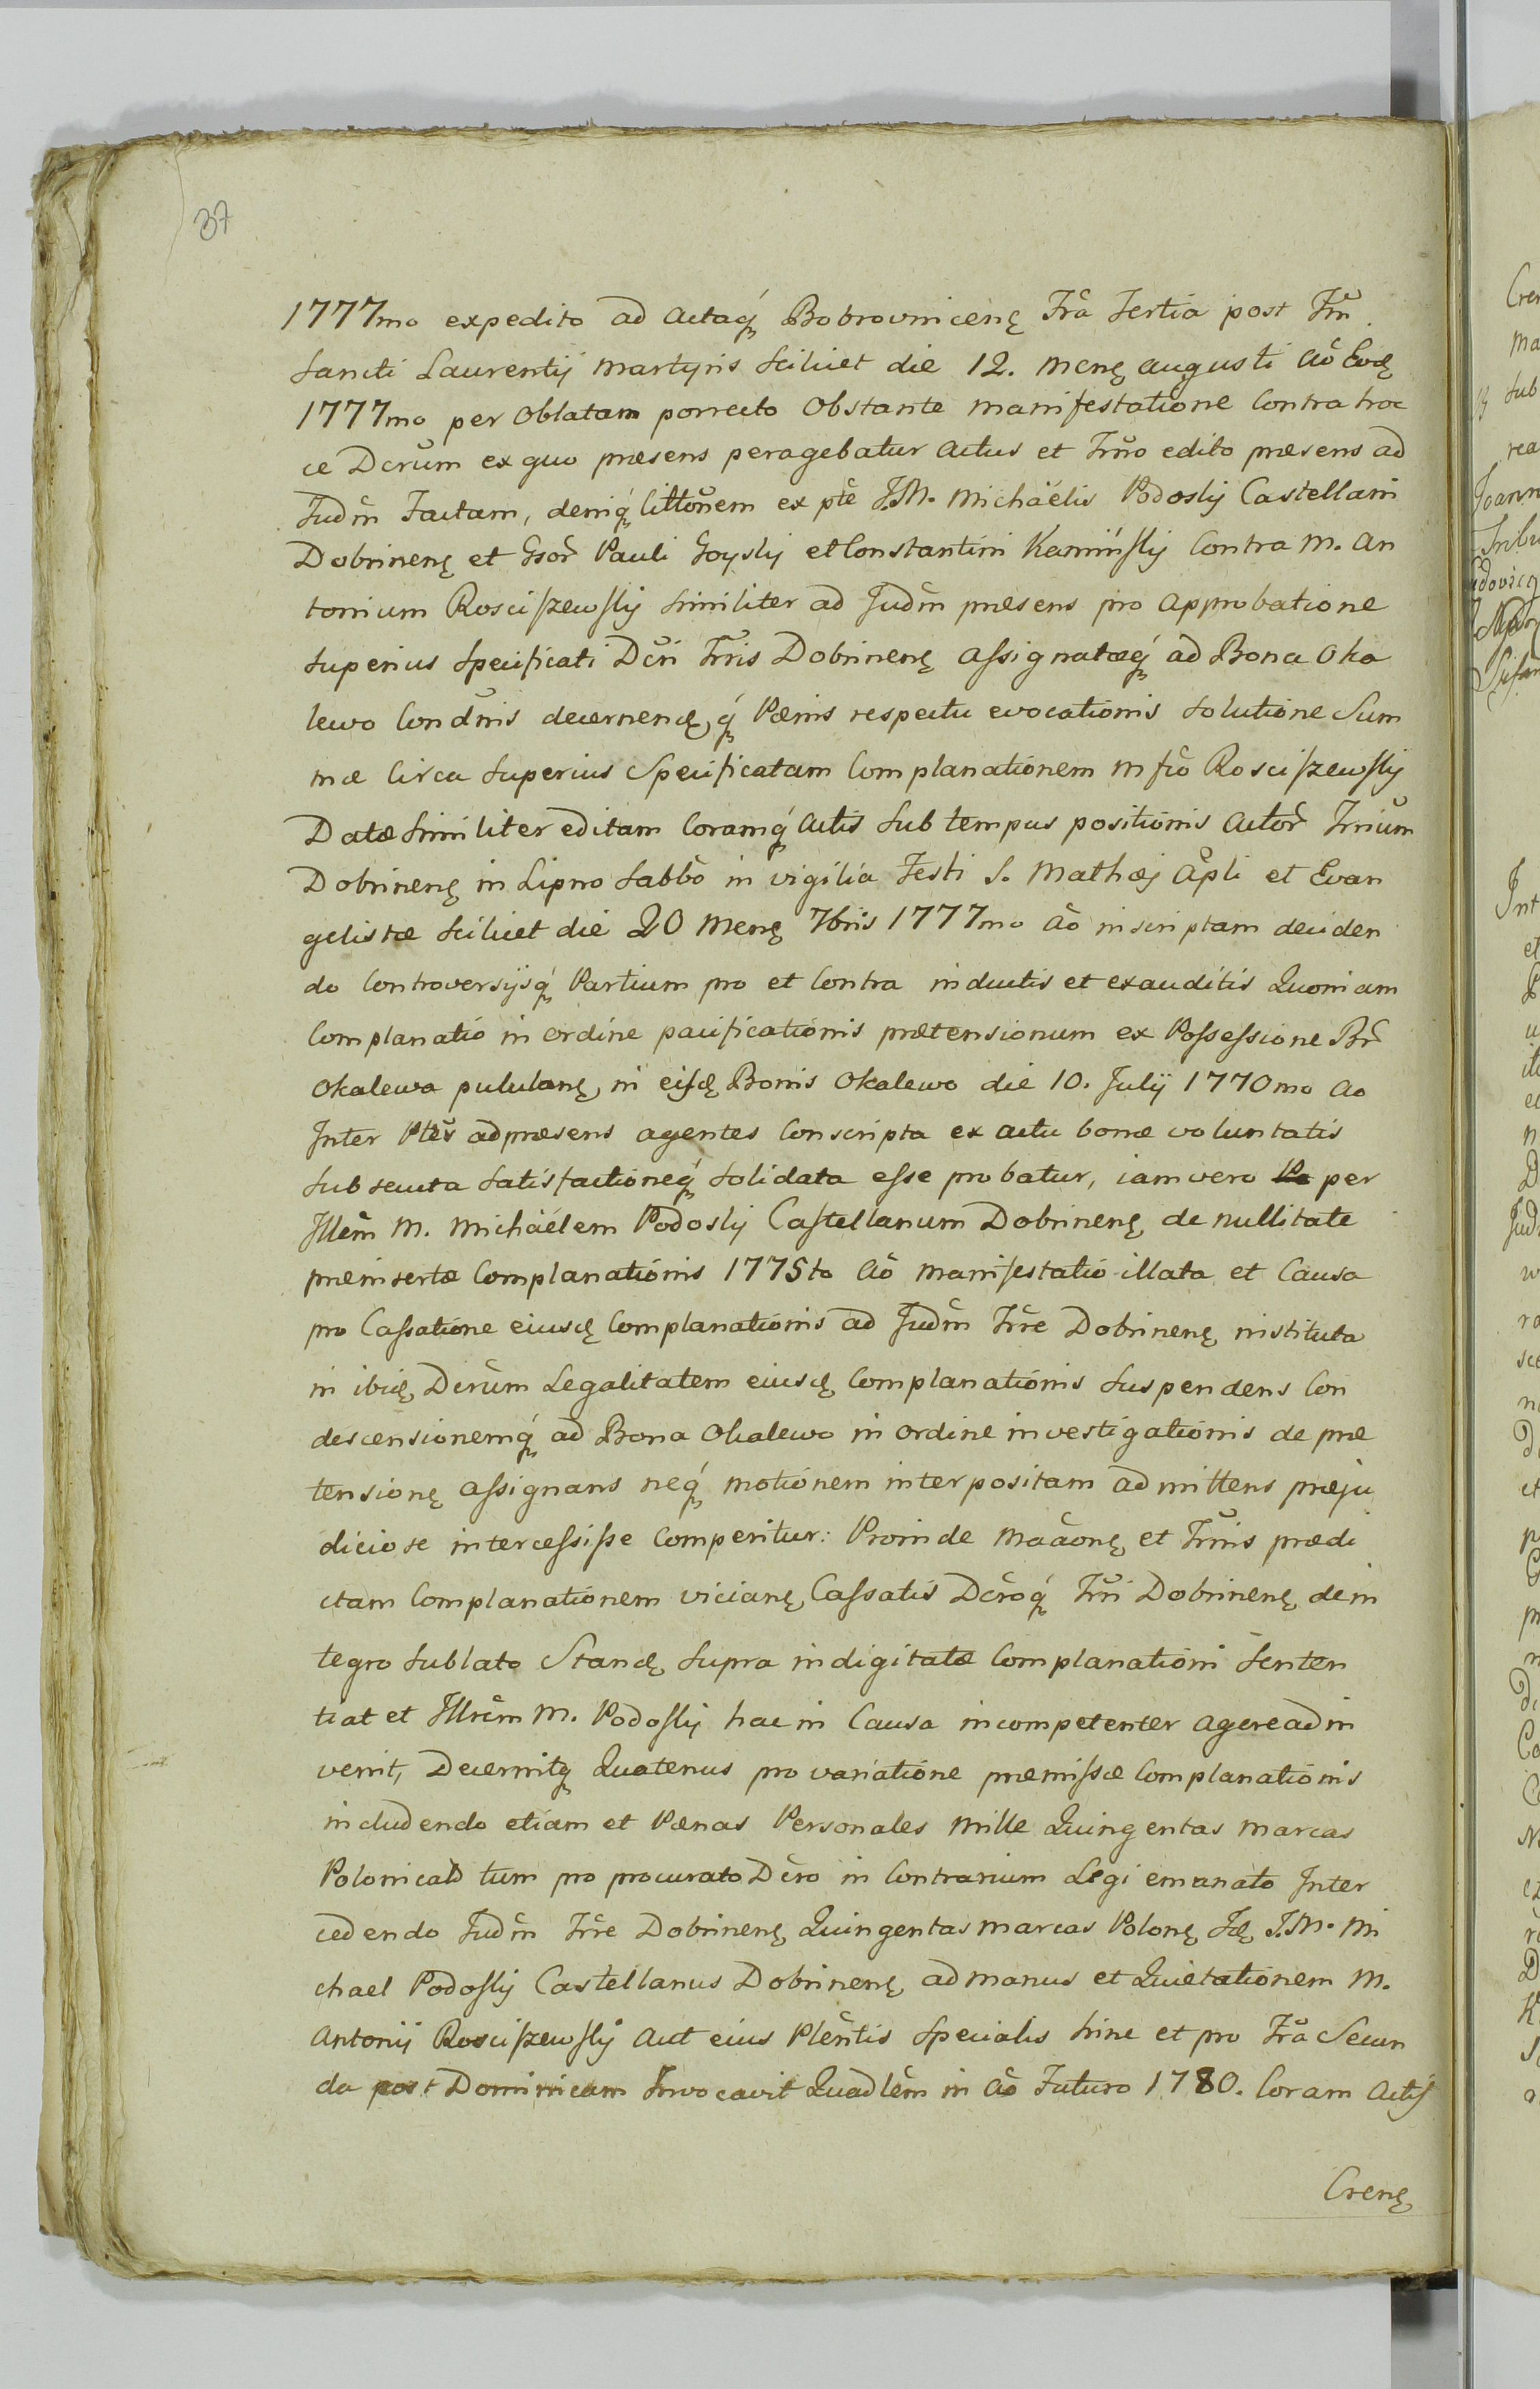 37
1777mo expedito ad Actaq́ꝫ Bobrovnicenꝫ Fr̃a Tertia post Fm̃
Sancti Laurentij Martyris Scilicet die 12. Menꝫ Augusti Aõ Eodꝫ
1777mo per Oblatam porrecto Obstante Manifestatione Contra hoc
ce Dcrũm ex quo præsens peragebatur Actus et Trm̃o edito præsens ad
Judm̃ Factam, deniq́ꝫ Cittõnem ex ptẽ J.M. Michäelis Podoskÿ Castellani
Dobrinenꝫ et Gsor̃ Pauli Goyskÿ et Constantini Kamińskÿ Contra M. An
tonium Rosciszewskÿ Similiter ad Judm̃ præsens pro Approbatione
Superius Specificati Dcr̃i Trr̃is Dobrinenꝫ Assignatæq́ꝫ ad Bona Oka
lewo Condñis decernendꝫ q́ꝫ Pænis respectu evocationis Solutione Sum
mæ Circa Superius Specificatam Complanationem Mfcõ Rosciszewskÿ
Datæ Similiter editam Coramq́ꝫ Actis Sub tempus positionis Actor̃ Trrium̃
Dobrinenꝫ in Lipno Sabbõ in vigilia Festi S. Mathæj Apl̃i et Evan
gelistæ Scilicet die 20 Menꝫ 7bris 1777mo Aõ inscriptam deciden
do Controversijsq́ꝫ Partium pro et Contra inductis et exauditis Quoniam
Complanatio in ordine pacificationis prætensionum ex Possessione Br̃
Okalewa pululanꝫ, in eisdꝫ Bonis Okalewo die 10. Julÿ 1770mo Ao
Inter Ptẽs ad præsens agentes Conscripta ex actu bonæ voluntatis
Subsecuta Satisfactioneq́ꝫ Solidata esse probatur, iam vero per
Jllem̃ M. Michäelem Podoskÿ Castellanum Dobrinenꝫ de nullitate
præinsertæ Complanationis 1775to Aõ Manifestatio illata et Causa
pro Cassatione eiusdꝫ Complanationis ad Judm̃ Trr̃e Dobrinenꝫ instituta
in ibidꝫ, Dcrũm Legalitatem eiusdꝫ Complanationis Suspendens Con
descensionemq́ꝫ ad Bona Okalewo in ordine investigationis de præ
tensionꝫ Assignans neq́ꝫ motionem interpositam admittens præju
diciose intercessisse Comperitur: Proinde Maãonꝫ et Trm̃is prædi
ctam Complanationem vicianꝫ, Cassatis Dcrõq́ꝫ Trr̃i Dobrinenꝫ de in
tegro Sublato Standꝫ Supra indigitatæ Complanationi Senten
tiat et Jllrem̃ M. Podoskÿ hac in Causa incompetenter Agere ad in
venit, Decernitqꝫ Quatenus pro variatione præmissæ Complanationis
includendo etiam et Pænas Personales Mille Quingentas Marcas
Polonicas tum pro procurato Dcrõ in Contrarium Legi emanato Inter
cedendo Judm̃ Trr̃e Dobrinenꝫ Quingentas marcas Polonꝫ Idꝫ J.M. Mi
chael Podoskÿ Castellanus Dobrinenꝫ ad manus et Quietationem M.
Antonij Rosciszewskÿ Aut eius Plen̂tis Specialis hinc et pro Fr̃a Secun
da post Dominicam Invocavit Quadlẽm in Aõ Futuro 1780. Coram Actis
Crenꝫ